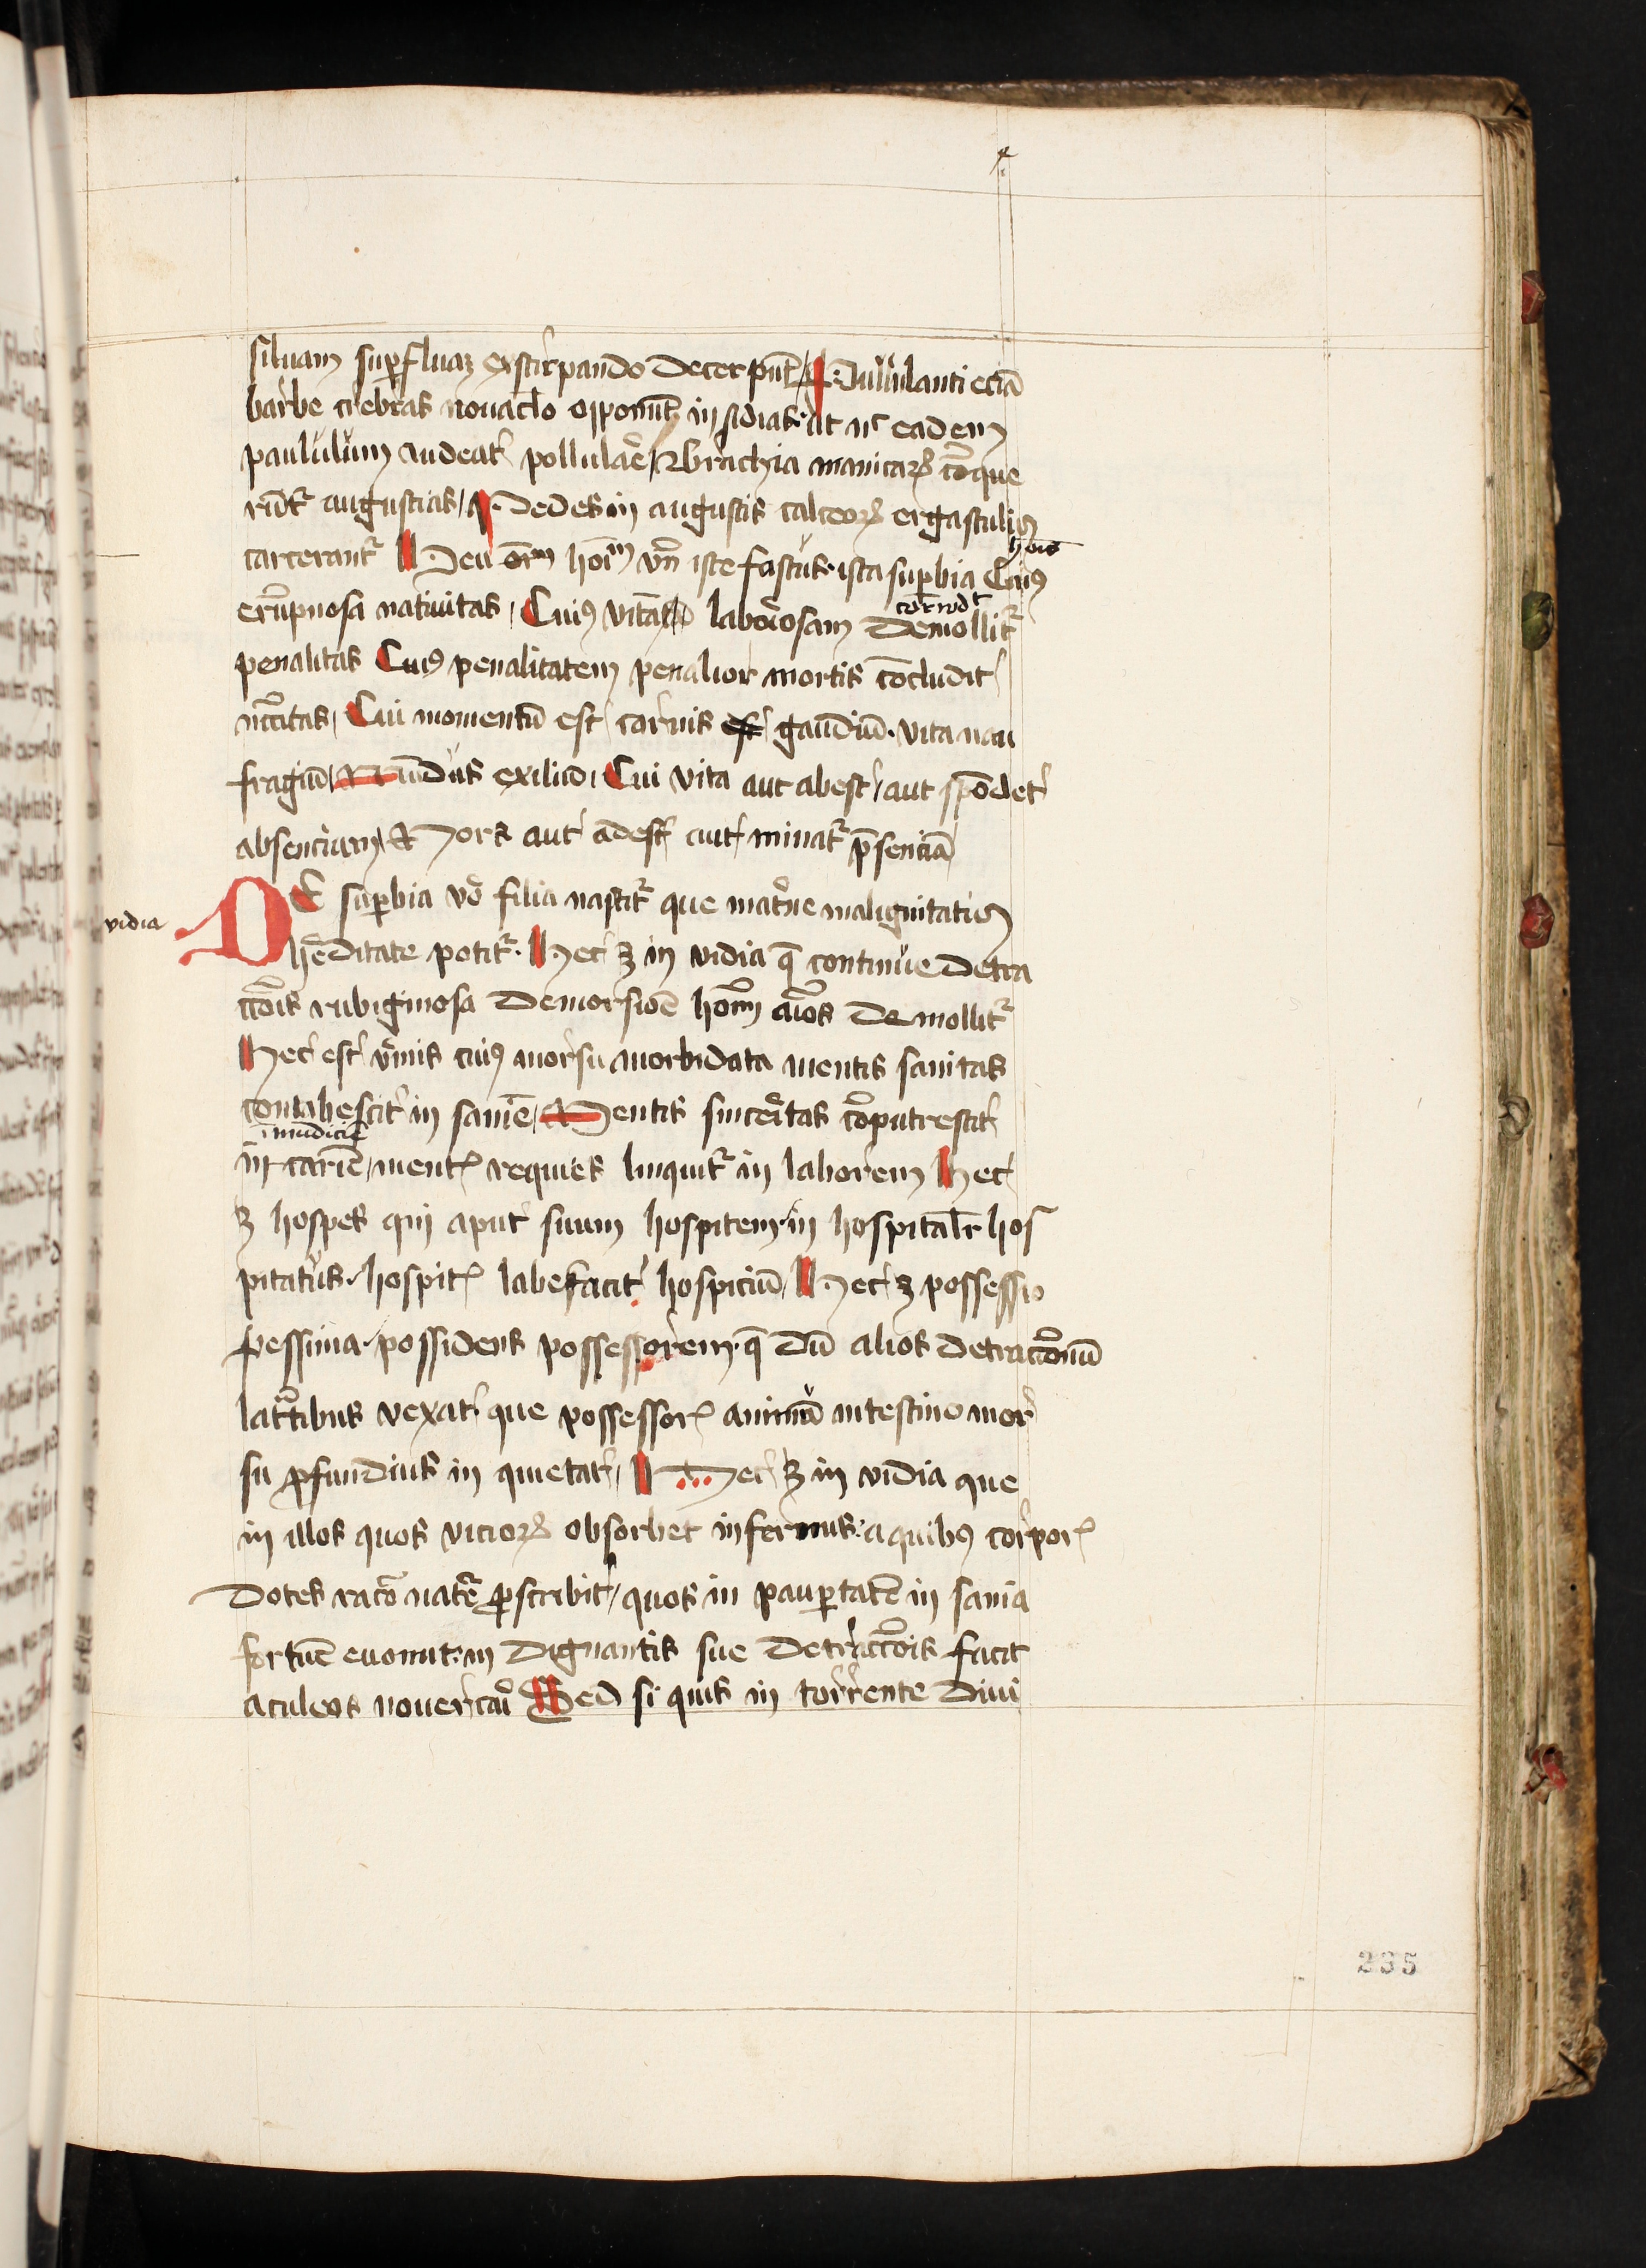 siluam suꝑfluaʒ exstirpando decerpūt Pululanti eciā
barbe crebras nouaclo opponūt in sidias ut nc eadem
paululum audeat pollulare brachia manicaꝝ cōque
rūtur angustias Pedes in angustis calceoꝝ ergastulis
carcerantur Heu orm hoīm vn iste fastus ista suꝑbia Cuiꝰ
hoīs
erūpnosa natiuitas Cuiꝰ vitā laboriosam demollitur
corrodt
penalitas Cuiꝰ penalitatem penalior mortis cōcludit
nccitas Cui momentū est carnis est gaudiū vita nau
fragiū Mundus exiliū Cui vita aut abest aut spōdet
absenciam Mors aut adest aut minatur p̄senciā
DE suꝑbia vo filia nascitur que materne malignitatis
vidia
hereditate potitur Hec ʒ in vidia q̄ continue detra
ctiōis rubiginosa demorsiōe hoīm aīos demollitur
Hec est vermis cuiꝰ morsu morbidata mentis sanitas
contabescit in saniē Mentis sinceritas cōputrescit
īmūdicie
in cariē mentꝭ requies linquitur in laborem Hec
ʒ hospes qui aput suum hospitem in hospitalr hos
pitatus hospitꝭ labefacit hospiciū Hec ʒ possessio
pessima possidens possessorem q̄ dū alios detractionū
latratibus vexat que possessorꝭ animū intestino mor
su ꝓfundius in quietat Hec ʒ in vidia que
in illos quos vicioꝝ obsorbet infernus a quibꝰ corporꝭ
dotes racō nature ꝓscribit quos in pauꝑtatē in sania
fortune euomit in dignantis sue detractiōis facit
aculeos nouercari Sed si quis in torrente diui
235